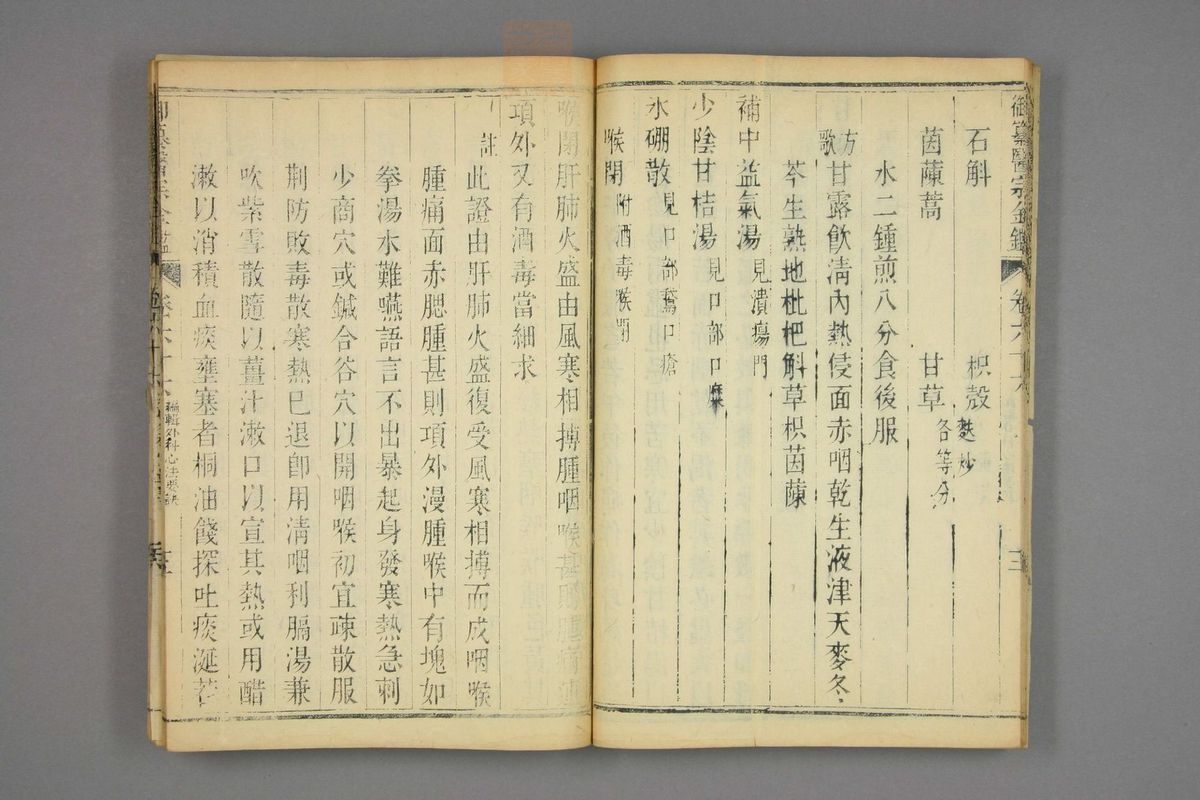 御纂醫宗金鑑 卷六十六
石斛 枳殼麩炒
茵蔯蒿 甘草各等分
水二鍾煎八分食後服
方歌 甘露飲淸內熱侵面赤咽乾生液津天麥冬
芩生熟地枇杷斛草枳茵蔯
補中益氣湯見潰瘍門
少陰甘桔湯見口部口糜
氷硼散見口部鵞口瘡
喉閉附酒毒喉閉
喉閉肝肺火盛由風寒相搏腫咽喉甚則腫痛
項外又有酒毒當細求
註 此證由肝肺火盛復受風寒相搏而成咽喉
腫痛面赤腮腫甚則項外漫腫喉中有塊如
拳湯水難嚥語言不出暴起身發寒熱急刺
少商穴或鍼合谷穴以開咽喉初宜疎散服
荆防敗毒散寒熱已退卽用淸咽利膈湯兼
吹紫雪散隨以薑汁漱口以宣其熱或用醋
漱以消積血痰壅塞者桐油餞探吐痰涎若
編輯外科心法要訣